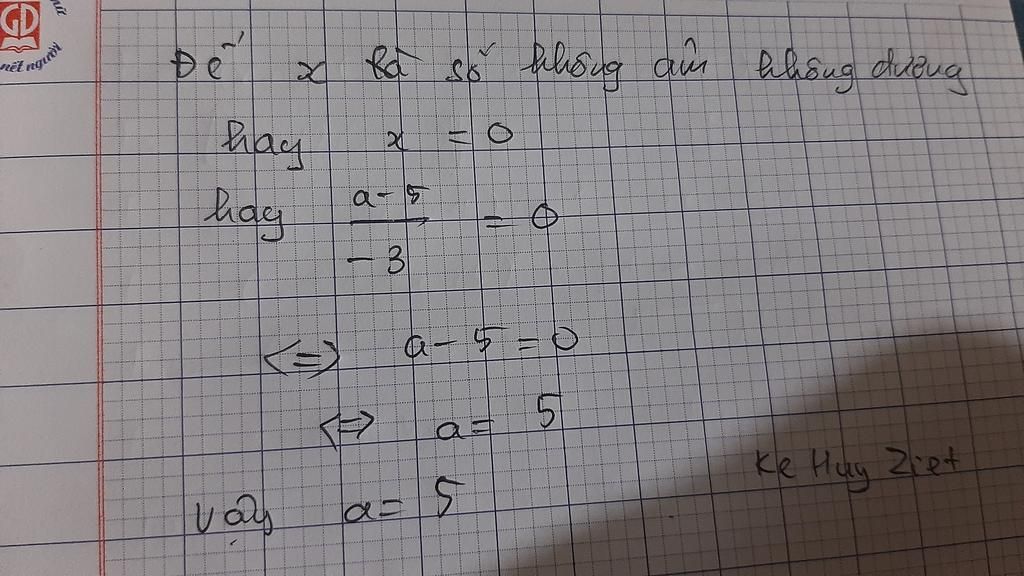 GD
nết người
Để x là số không âm không dương
hay x = 0
hay a - 5 / -3 = 0
<=> a - 5 = 0
<=> a = 5
Vậy a = 5
Ke Huy Ziet